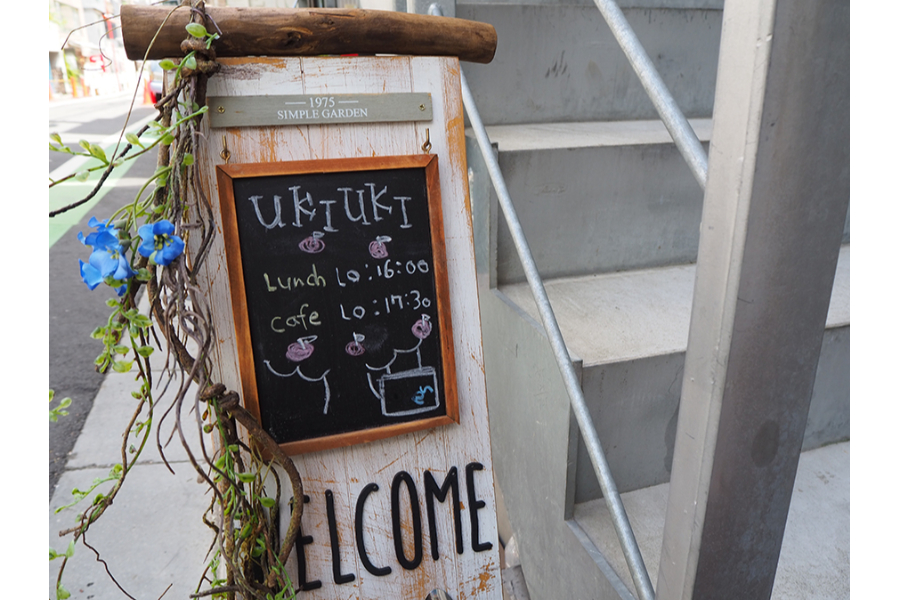 1975
SIMPLE GARDEN
UKIUKI
Lunch LO:16:00
cafe LO:17:30
WELCOME